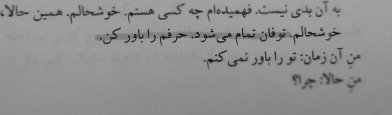 به آن بدی نیست. فهمیده‌ام چه کسی هستم. خوشحالم. همین حالا،
خوشحالم. توفان تمام می‌شود. حرفم را باور کن.
منِ آن زمان: تو را باور نمی‌کنم.
منِ حالا: چرا؟